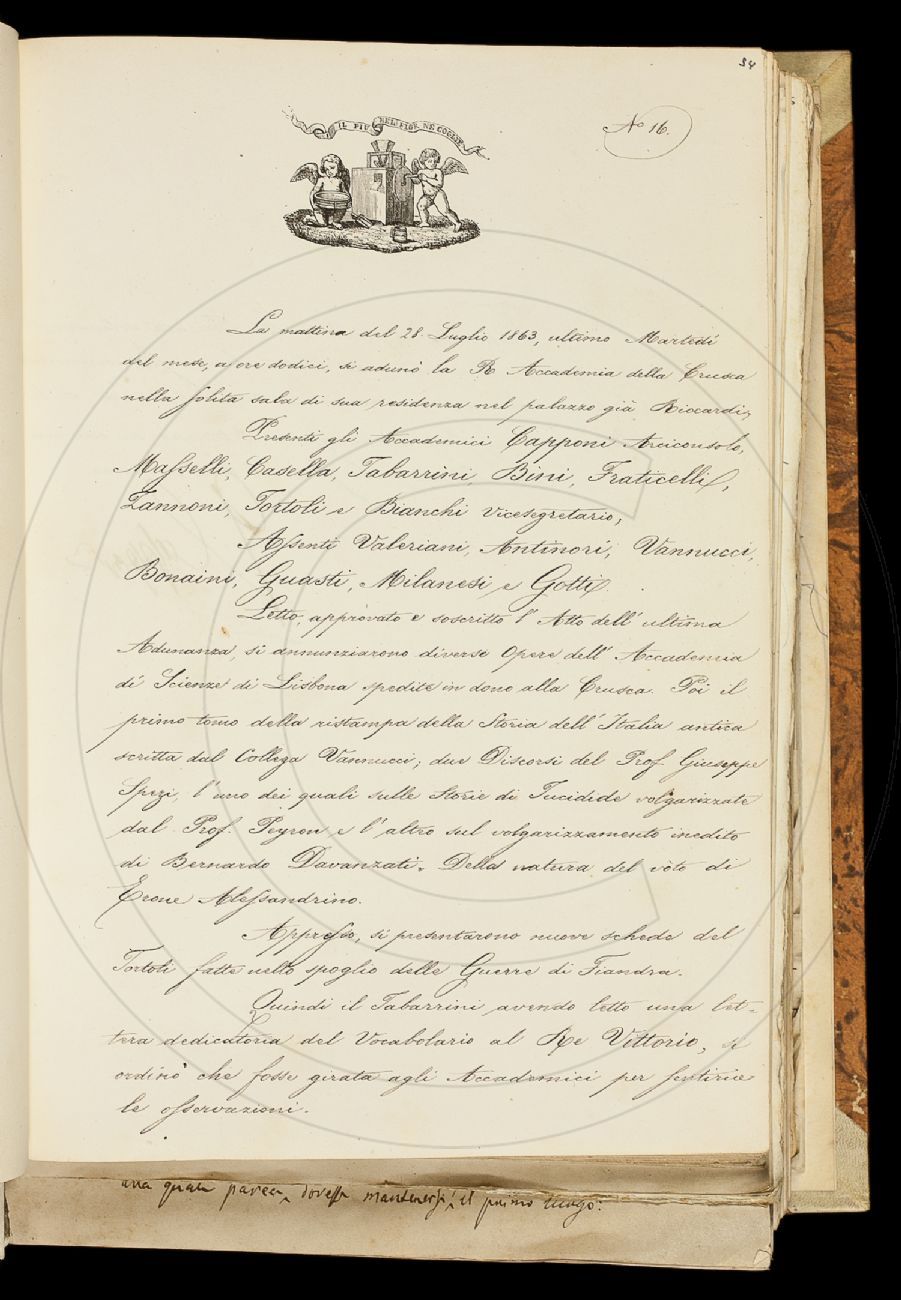 34
IL PIÙ BEL FIOR NE COGLIE
N.o 16.
La mattina del 28. Luglio 1863, ultimo Martedì
del mese, a ore dodici, si adunò la R. Accademia della Crusca
nella solita sala di sua residenza nel palazzo già Riccardi,
Presenti gli Accademici Capponi Arciconsolo,
Masselli, Casella, Tabarrini, Bini, Fraticelli,
Zannoni, Tortoli e Bianchi Vicesegretario;
Assenti Valeriani, Antinori, Vannucci,
Bonaini, Guasti, Milanesi e Gotti.
Letto, approvato e soscritto l' Atto dell' ultima
Adunanza, si annunziarono diverse Opere dell' Accademia
di Scienze di Lisbona spedite in dono alla Crusca. Poi il
primo tomo della ristampa della Storia dell' Italia antica
scritta dal Collega Vannucci; due Discorsi del Prof. Giuseppe
Spezi, l' uno dei quali sulle Storie di Tucidide volgarizzate
dal Prof. Peyron e l' altro sul volgarizzamento inedito
di Bernardo Davanzati. Della natura del vòto di
Erone Alessandrino.
Appresso, si presentarono nuove schede del
Tortoli fatte nello spoglio delle Guerre di Fiandra.
Quindi il Tabarrini avendo letto una let-
tera dedicatoria del Vocabolario al Re Vittorio, si
ordinò che fosse girata agli Accademici per sentirne
le osservazioni.
quale parea, dovesse mantenersi il primo luogo.